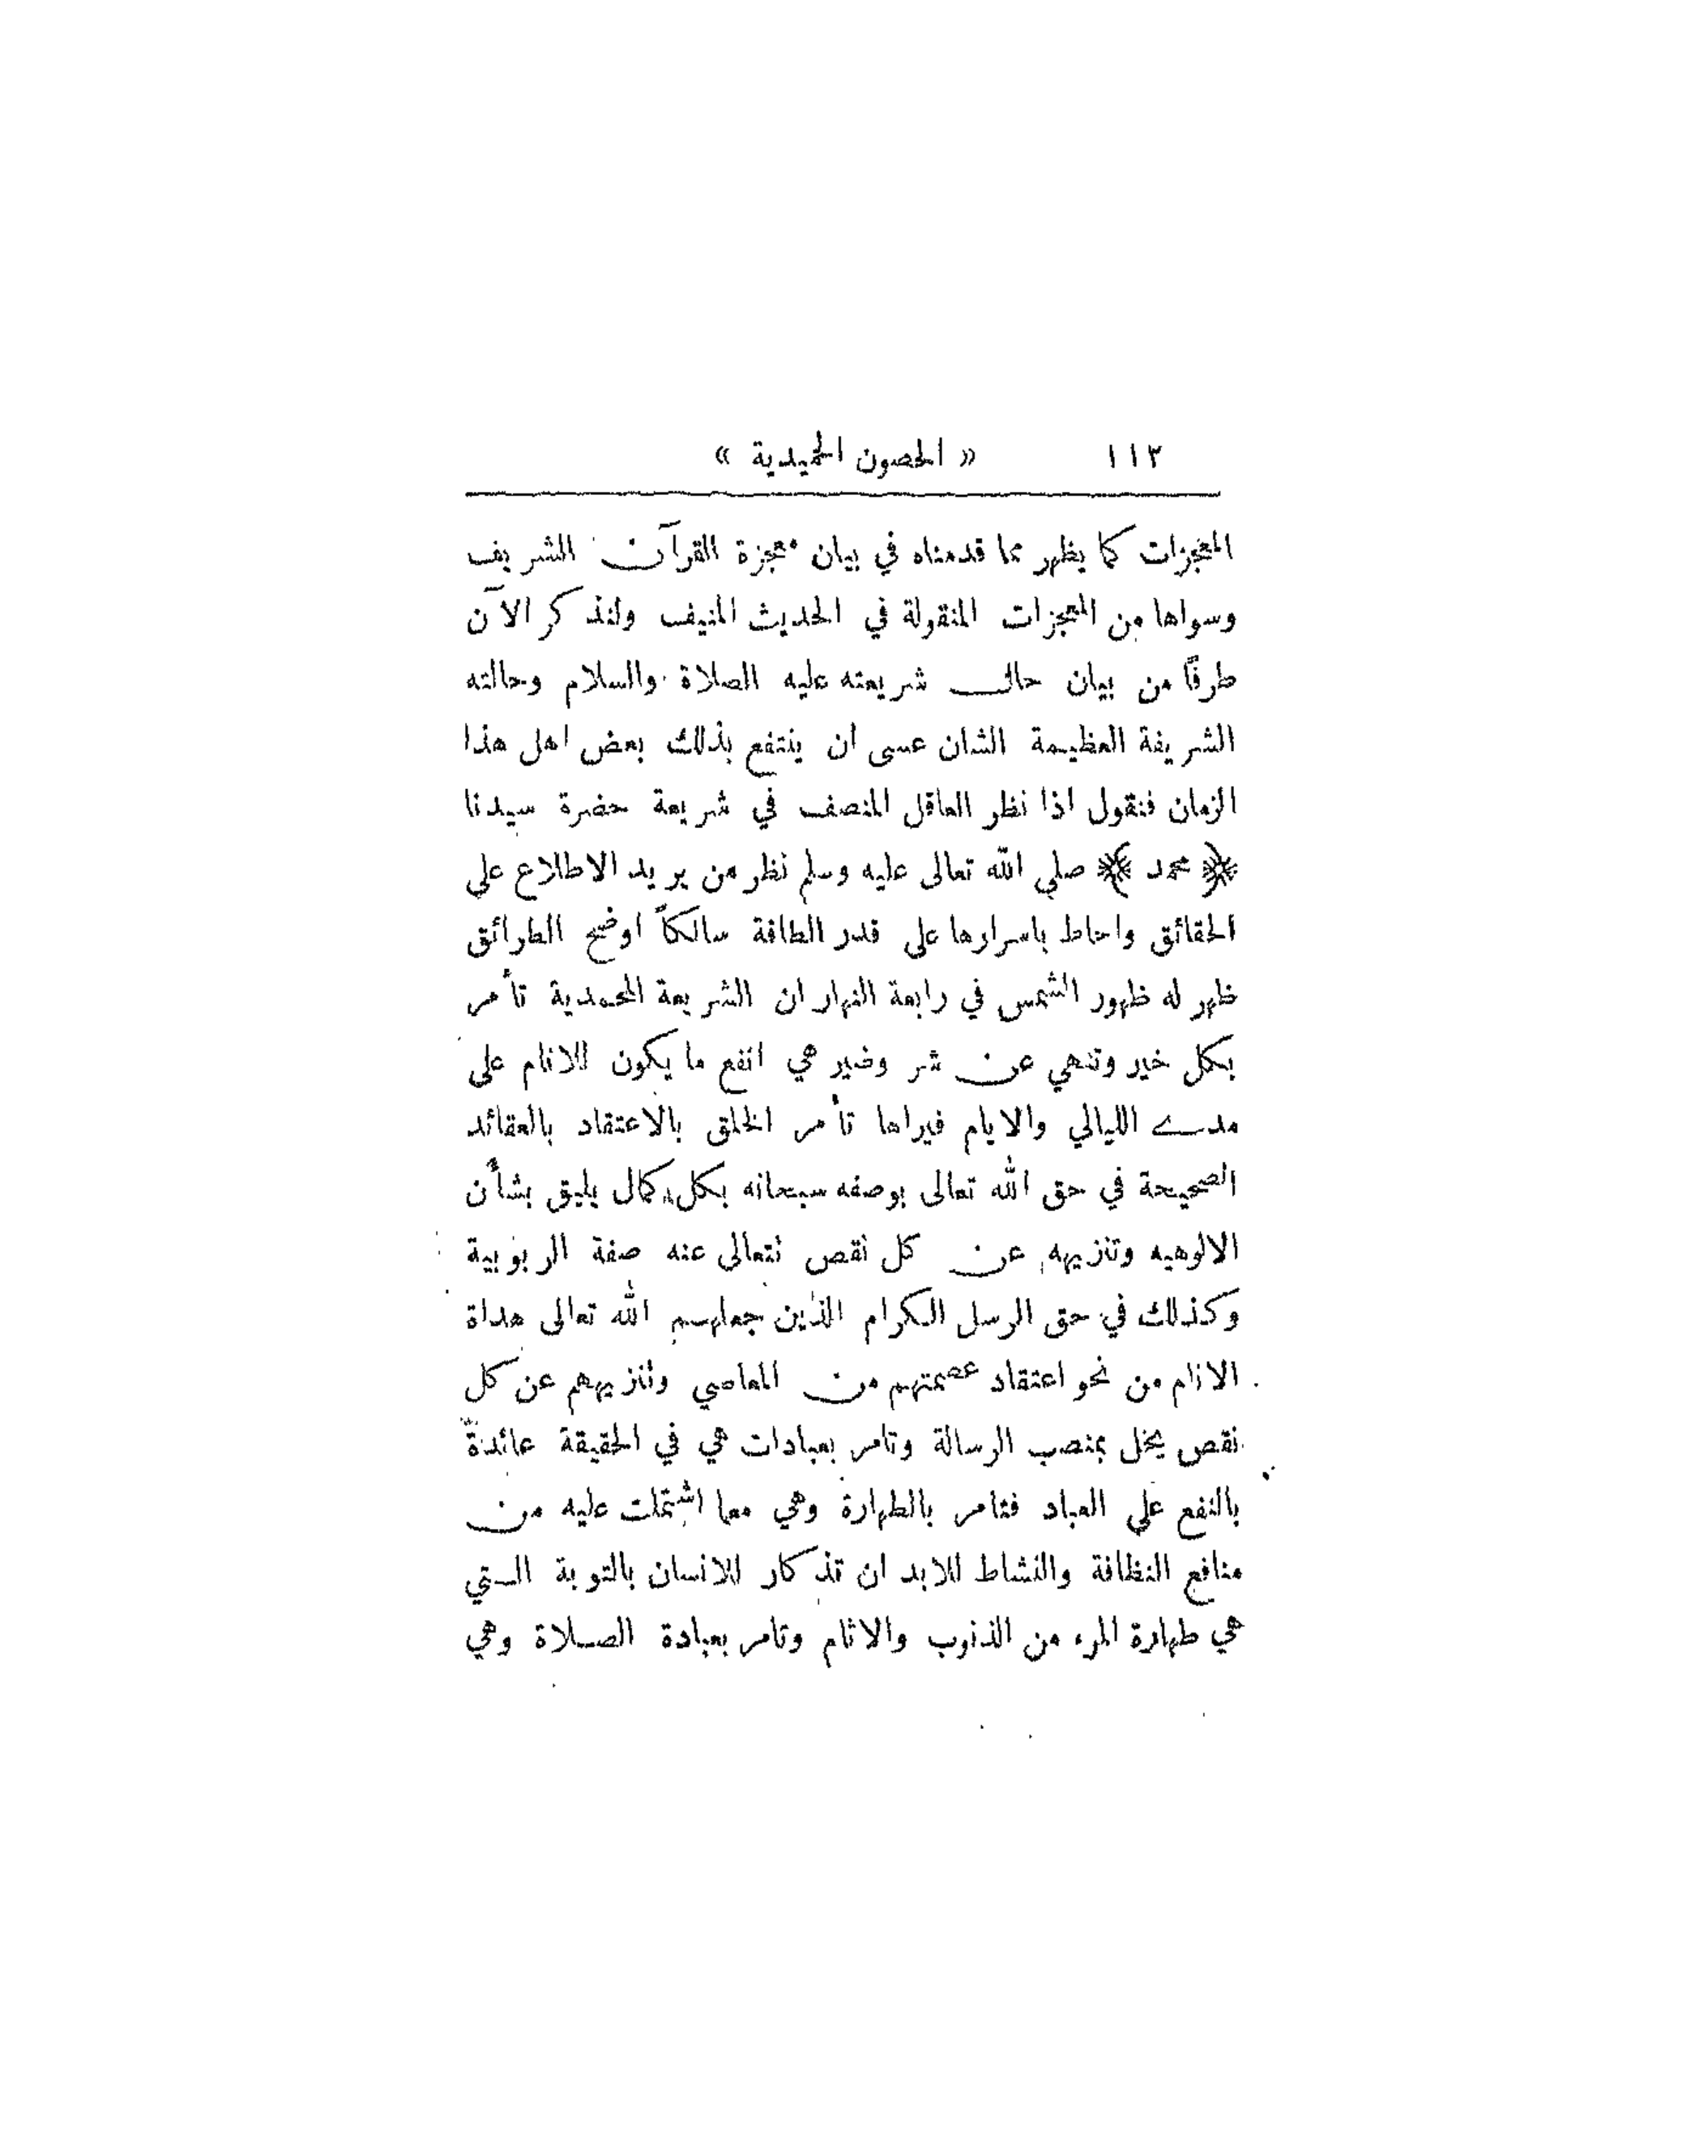 ١١٢ « الحصون الحميدية »
المعجزات كما يظهر مما قدمناه في بيان معجزة القرآن الشريف
وسواها من المعجزات المنقولة في الحديث المنيف ولنذكر الآن
طرفًا من بيان حال شريعته عليه الصلاة والسلام وحالته
الشريفة العظيمة الشان عسى ان ينتفع بذلك بعض اهل هذا
الزمان فنقول اذا نظر العاقل المنصف في شريعة حضرة سيدنا
﴿ محمد ﴾ صلى الله تعالى عليه وسلم نظر من يريد الاطلاع على
الحقائق واحاط باسرارها على قدر الطاقة سالكاً اوضح الطرائق
ظهر له ظهور الشمس في رابعة النهار ان الشريعة المحمدية تأمر
بكل خير وتنهي عن شر وضير هي انفع ما يكون للانام على
مدى الليالي والايام فيراها تأمر الخلق بالاعتقاد بالعقائد
الصحيحة في حق الله تعالى بوصفه سبحانه بكل كمال يليق بشأن
الالوهيه وتنزيهه عن كل نقص نتعالى عنه صفة الربوبية
وكذلك في حق الرسل الكرام الذين جعلهم الله تعالى هداة
الانام من نحو اعتقاد عصمتهم من المعاصي وتنزيههم عن كل
نقص يخل بمنصب الرسالة وتامر بعبادات هي في الحقيقة عائدةٌ
بالنفع على العباد فتامر بالطهارة وهي معما اشتملت عليه من
منافع النظافة والنشاط للابدان تذكار للانسان بالتوبة التي
هي طهارة المرء من الذنوب والاثام وتامر بعبادة الصلاة وهي